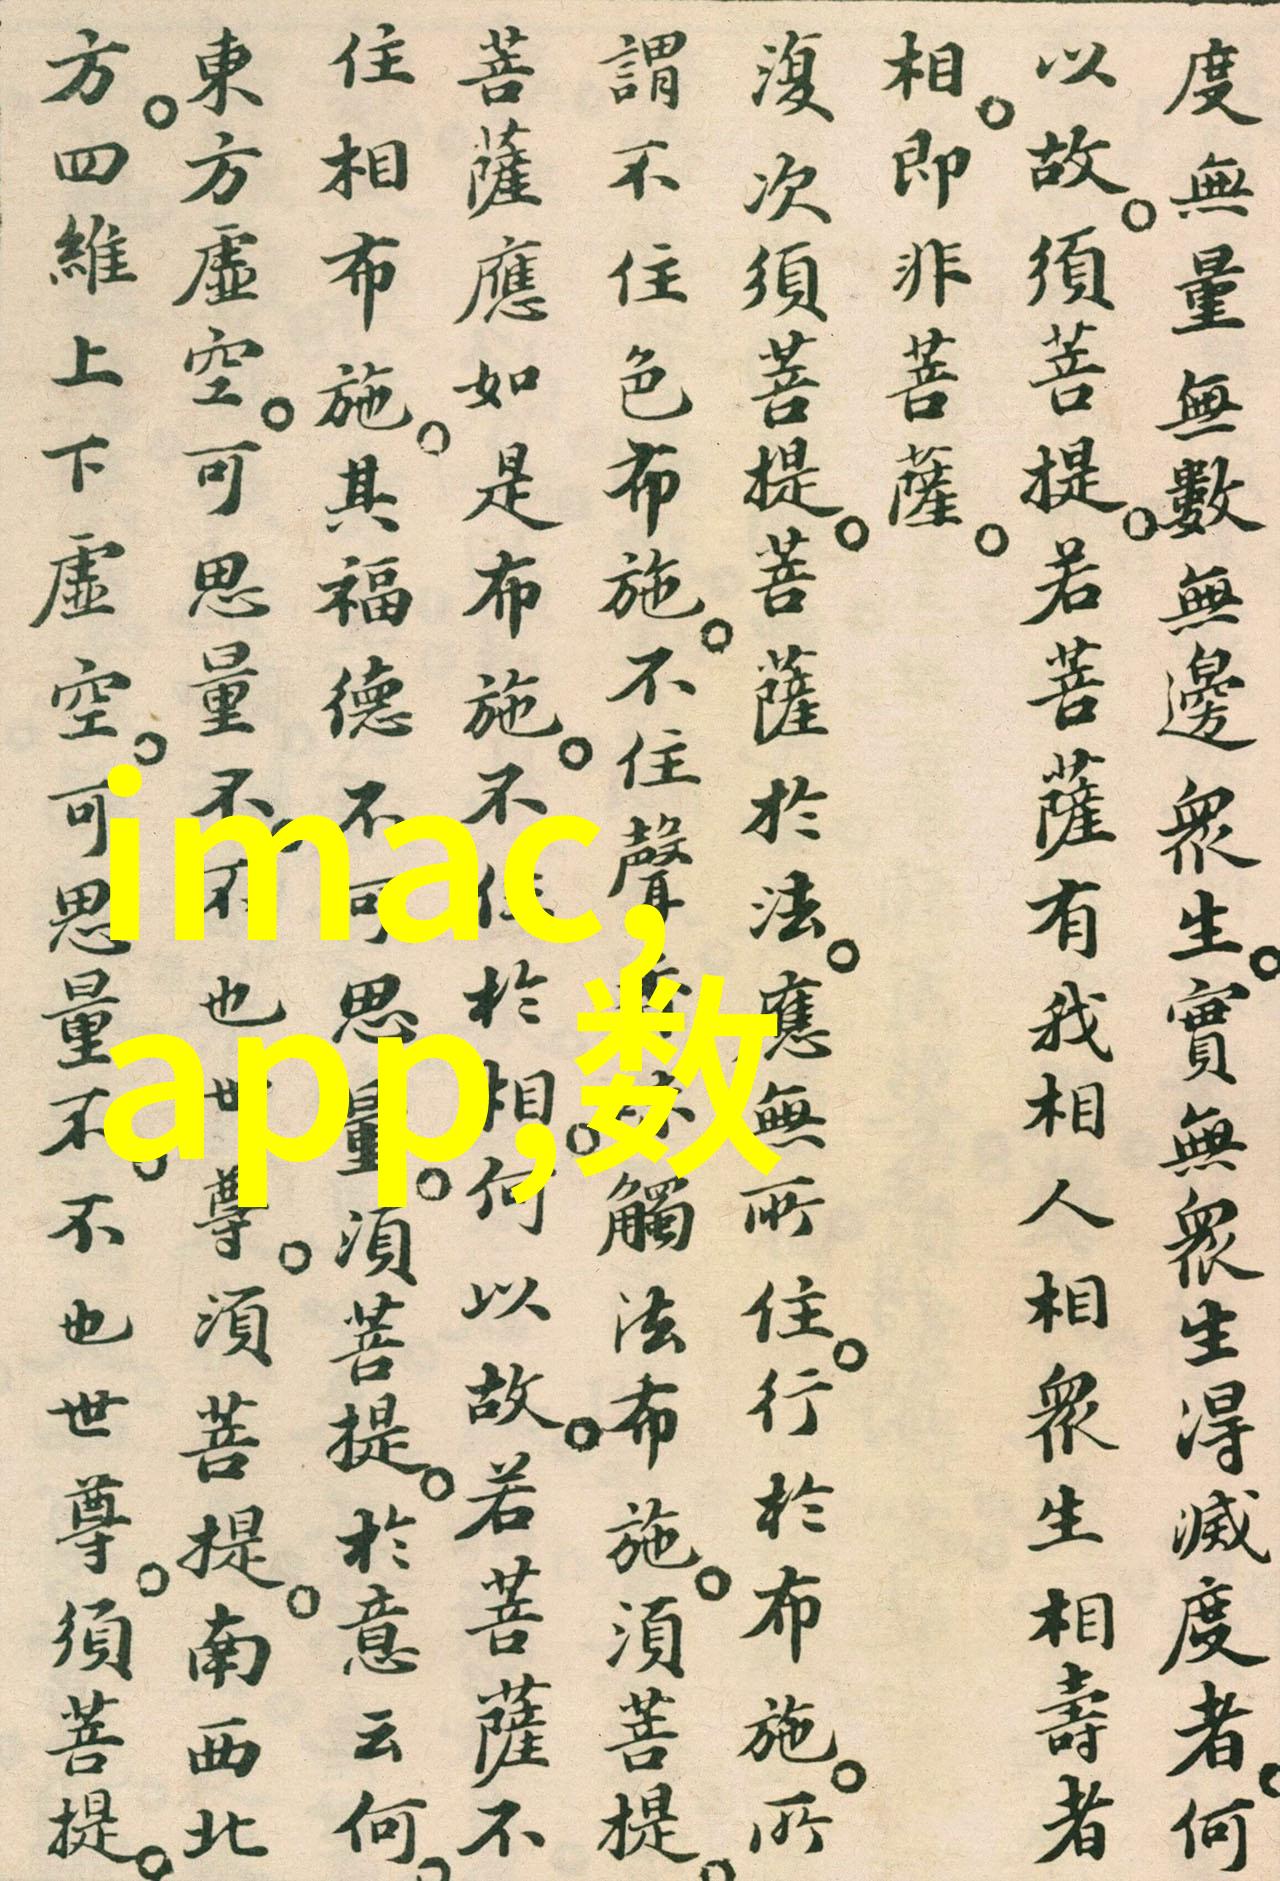 度無量無數無邊衆生。實無衆生得滅度者。何
以故。須菩提。若菩薩有我相人相衆生相壽者
相。即非菩薩。
復次須菩提。菩薩於法。應無所住。行於布施。所
謂不住色布施。不住聲香味觸法布施。須菩提。
菩薩應如是布施。不住於相。何以故。若菩薩不
住相布施。其福德不可思量。須菩提。於意云何。
東方虛空。可思量不。不也世尊。須菩提。南西北
方。四維上下虛空。可思量不。不也世尊。須菩提。
imac,
app,数